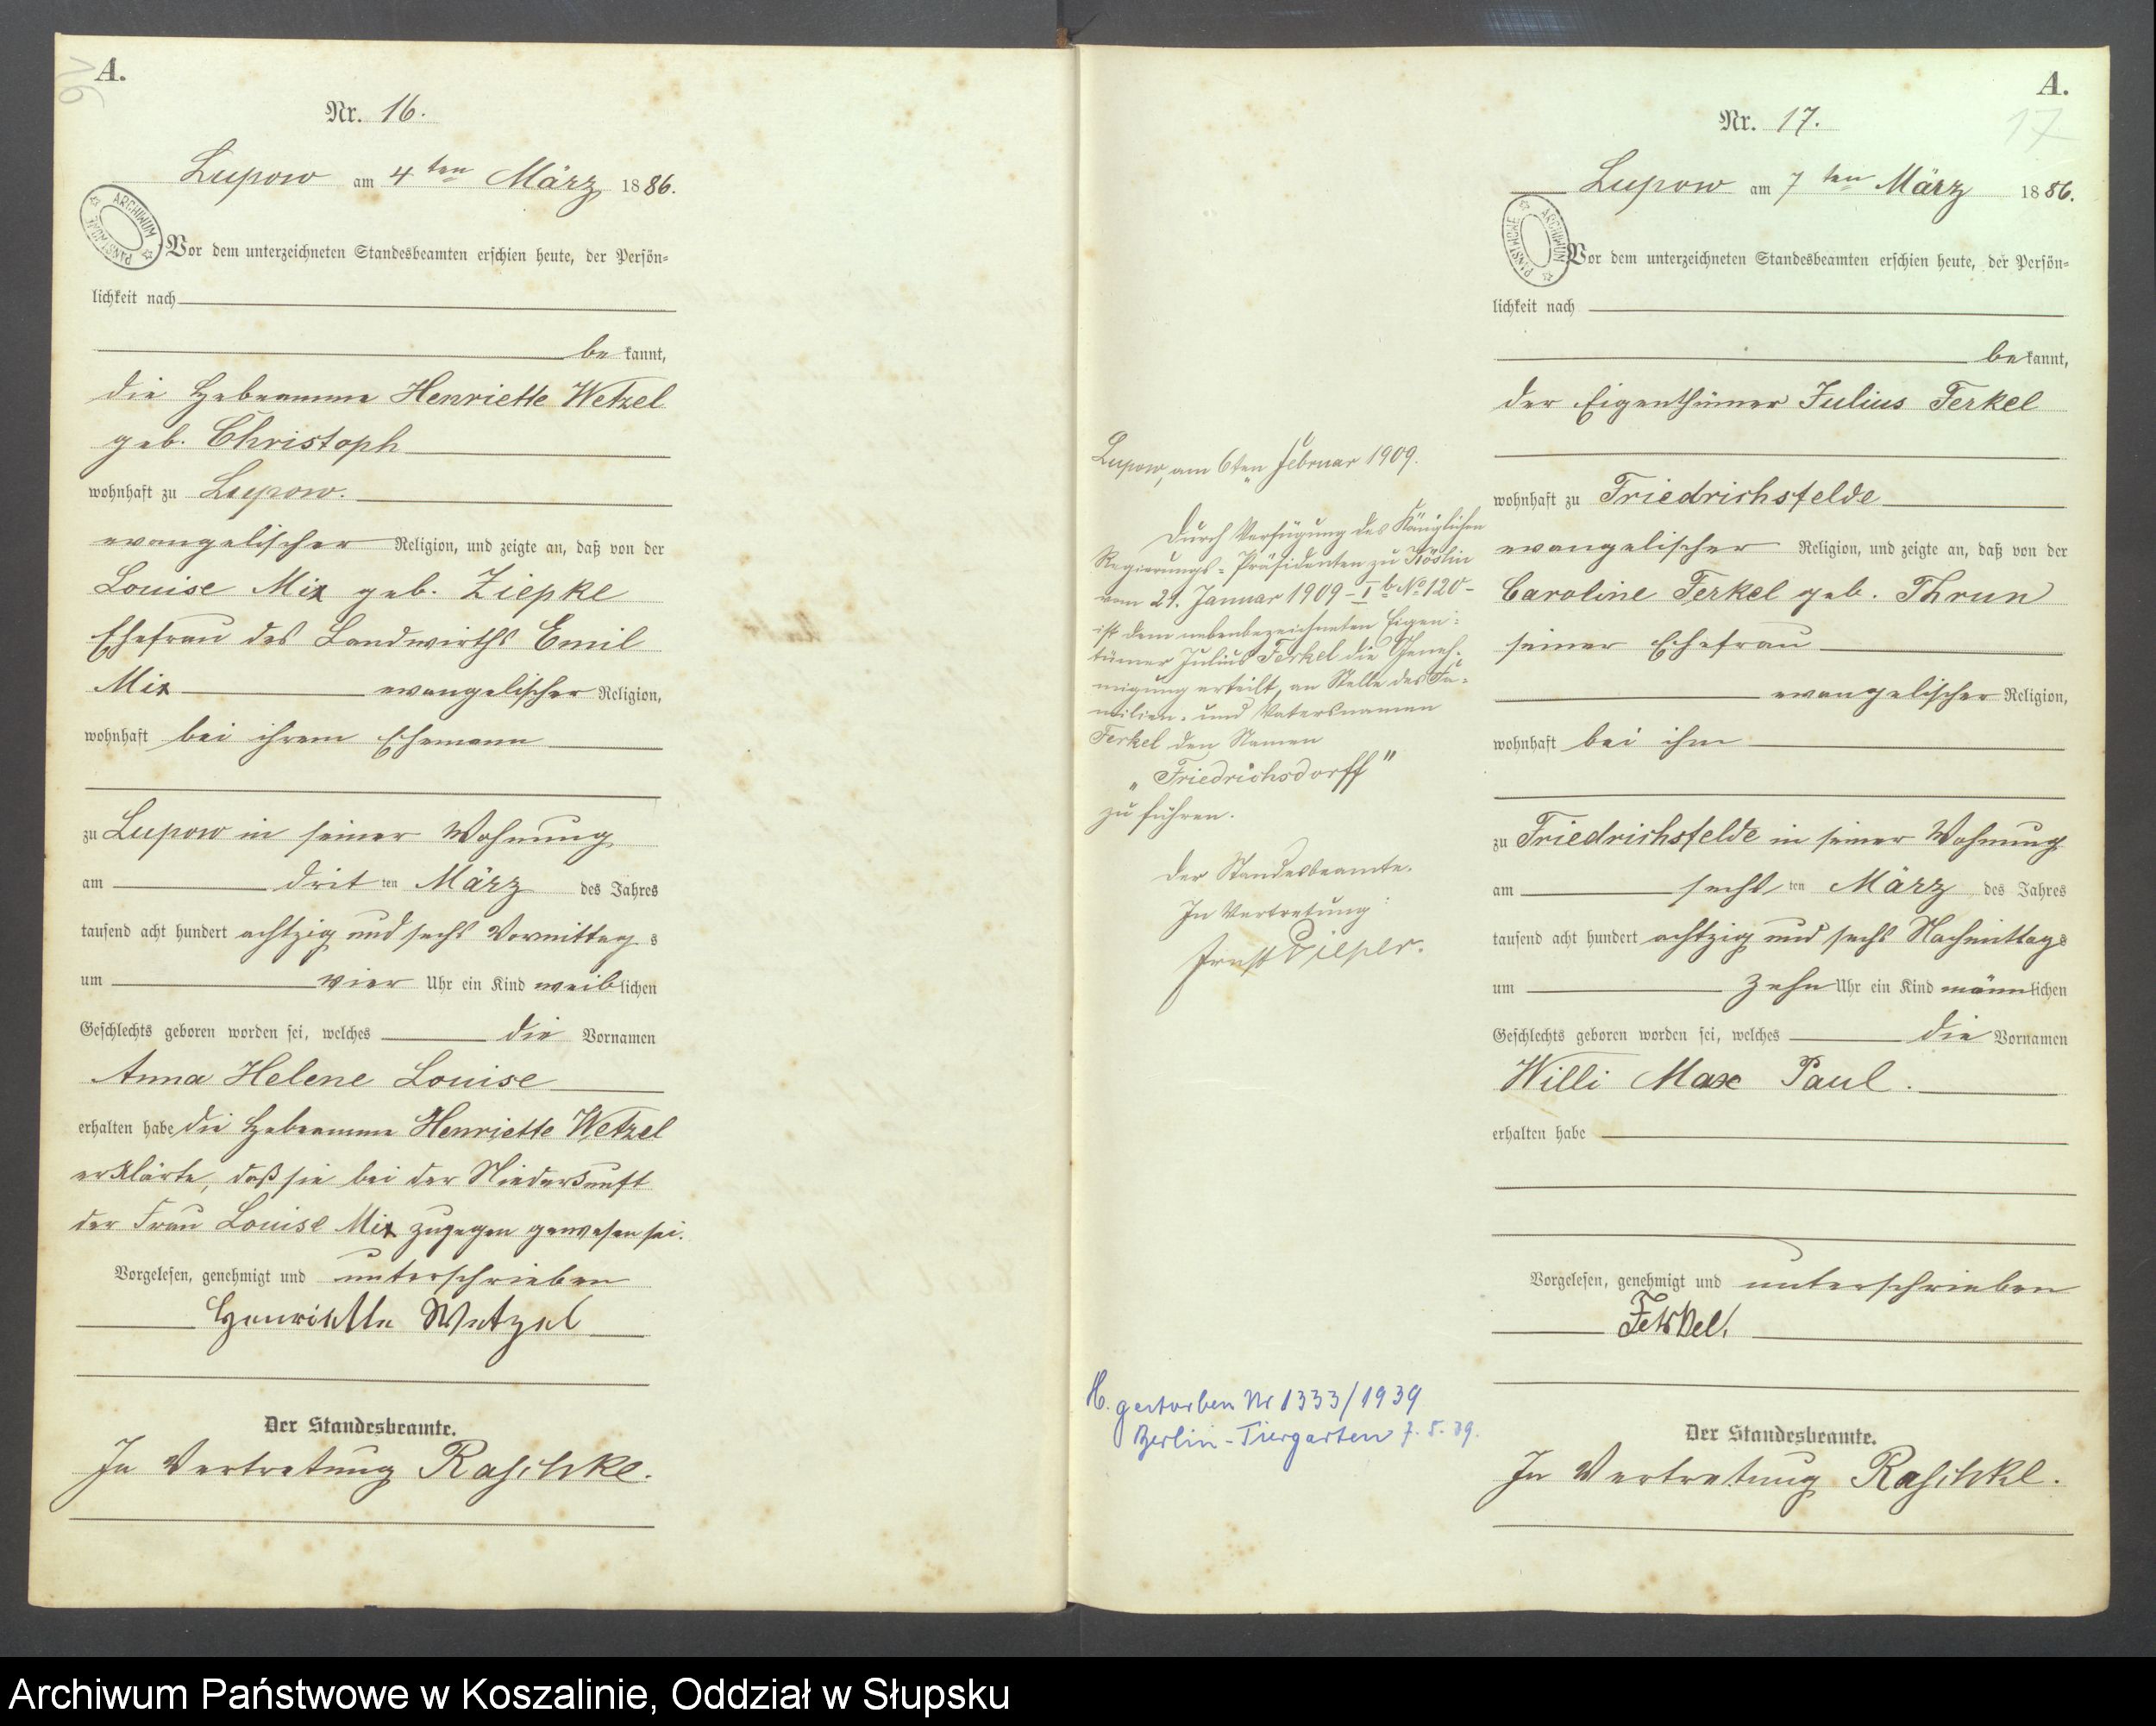 A.
16
Nr. 16.
Lupow am 4ten März 1886.
Vor dem unterzeichneten Standesbeamten erschien heute, der Persön=
lichkeit nach
be kannt,
die Hebeamme Henriette Wetzel
geb. Christoph
wohnhaft zu Lupow.
evangelischer Religion, und zeigte an, daß von der
Louise Mix geb. Ziepke
Ehefrau des Landwirths Emil
Mix evangelischer Religion,
wohnhaft bei ihrem Ehemann
zu Lupow in seiner Wohnung
am drit ten März des Jahres
tausend acht hundert achtzig und sechs Vormittag s
um vier Uhr ein Kind weiblichen
Geschlechts geboren worden sei, welches die Vornamen
Anna Helene Louise
erhalten habe die Hebeamme Henriette Wetzel
erklärte, daß sie bei der Niederkunft
der Frau Louise Mix zugegen gewesen sei.
Vorgelesen, genehmigt und unterschrieben
Henriette Wetzel
Der Standesbeamte.
In Vertretung Raschke.
ARCHIWUM PAŃSTWOWE
Lupow, am 6ten Februar 1909.
Durch Verfügung des Königlichen
Regierungs-Präsidenten zu Köslin
vom 29. Januar 1909 - I b No 120 -
ist dem nebenbezeichneten Eigen=
tümer Julius Ferkel die Geneh=
migung erteilt, an Stelle des Fa=
milien- und Vatersnamen
Ferkel den Namen
„Friedrichsdorff"
zu führen.
Der Standesbeamte.
In Vertretung:
Ernst Pieper.
H. gestorben Nr 1333/1939
Berlin-Tiergarten 7.5.39.
A.
17
Nr. 17.
Lupow am 7ten März 1886.
Vor dem unterzeichneten Standesbeamten erschien heute, der Persön=
lichkeit nach
be kannt,
der Eigenthümer Julius Ferkel
wohnhaft zu Friedrichsfelde
evangelischer Religion, und zeigte an, daß von der
Caroline Ferkel geb. Thrun
seiner Ehefrau
evangelischer Religion,
wohnhaft bei ihm
zu Friedrichsfelde in seiner Wohnung
am sechs ten März des Jahres
tausend acht hundert achtzig und sechs Nachmittag s
um zehn Uhr ein Kind männlichen
Geschlechts geboren worden sei, welches die Vornamen
Willi Max Paul.
erhalten habe
Vorgelesen, genehmigt und unterschrieben
Ferkel.
Der Standesbeamte.
In Vertretung Raschke.
ARCHIWUM PAŃSTWOWE
Archiwum Państwowe w Koszalinie, Oddział w Słupsku